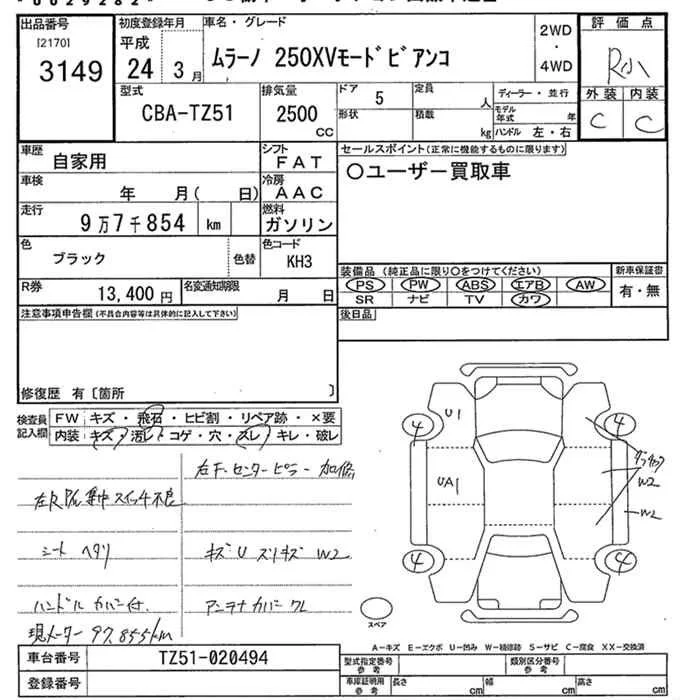 出品番号
[2170]
3149
初度登録年月
平成
24 3月
車名・グレード
ムラーノ 250XVモードビアンコ
2WD
・
4WD
評価点
R小
外装 内装
C C
型式
CBA-TZ51
排気量
2500
cc
ドア
5
定員
人
形状
積載
kg
ディーラー・並行
モデル年式 年
ハンドル 左・右
車歴
自家用
シフト
FAT
セールスポイント(正常に機能するものに限ります)
〇ユーザー買取車
車検
年 月( 日)
冷房
AAC
走行
9万7千854 km
燃料
ガソリン
色
ブラック
色替
色コード
KH3
装備品(純正品に限り〇をつけてください)
PS PW ABS エアB AW
SR ナビ TV カワ
新車保証書
有・無
R券
13,400円
名変通知期限
月 日
後日品
注意事項申告欄(不具合内容等は具体的に記入して下さい)
修復歴 有〔箇所 〕
検査員記入欄
FW キズ・飛石・ヒビ割・リペア跡・×要
内装 キズ・汚レ・コゲ・穴・スレ・キレ・破レ
左F.センターピラー加修
左R P/W 集中スイッチ不良
シート ヘタリ
キズ U スリキズ W2
ハンドルカバー付.
アンテナカバークレ
現メーター97,855km
U1
UA1
4
4
4
4
W2
W2
スペア
A-キズ E-エクボ U-凹み W-補修跡 S-サビ C-腐食 XX-交換済
車台番号
TZ51-020494
登録番号
型式指定番号
参考
類別区分番号
参考
車庫証明用
参考
長さ cm
幅 cm
高さ cm